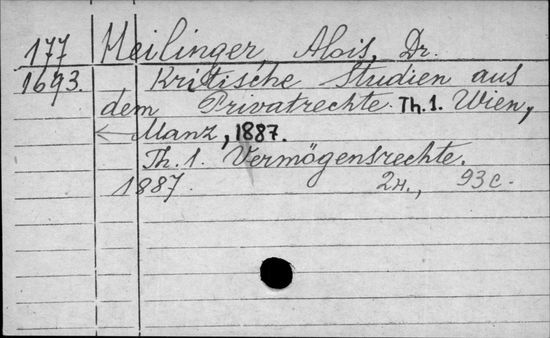 177 Meilinger, Alois, Dr.
1693. Kritische Studien aus
dem Privatrechte. Th. 1. Wien,
Manz, 1887.
Th. 1. Vermögensrechte.
1887. 2н., 93с.